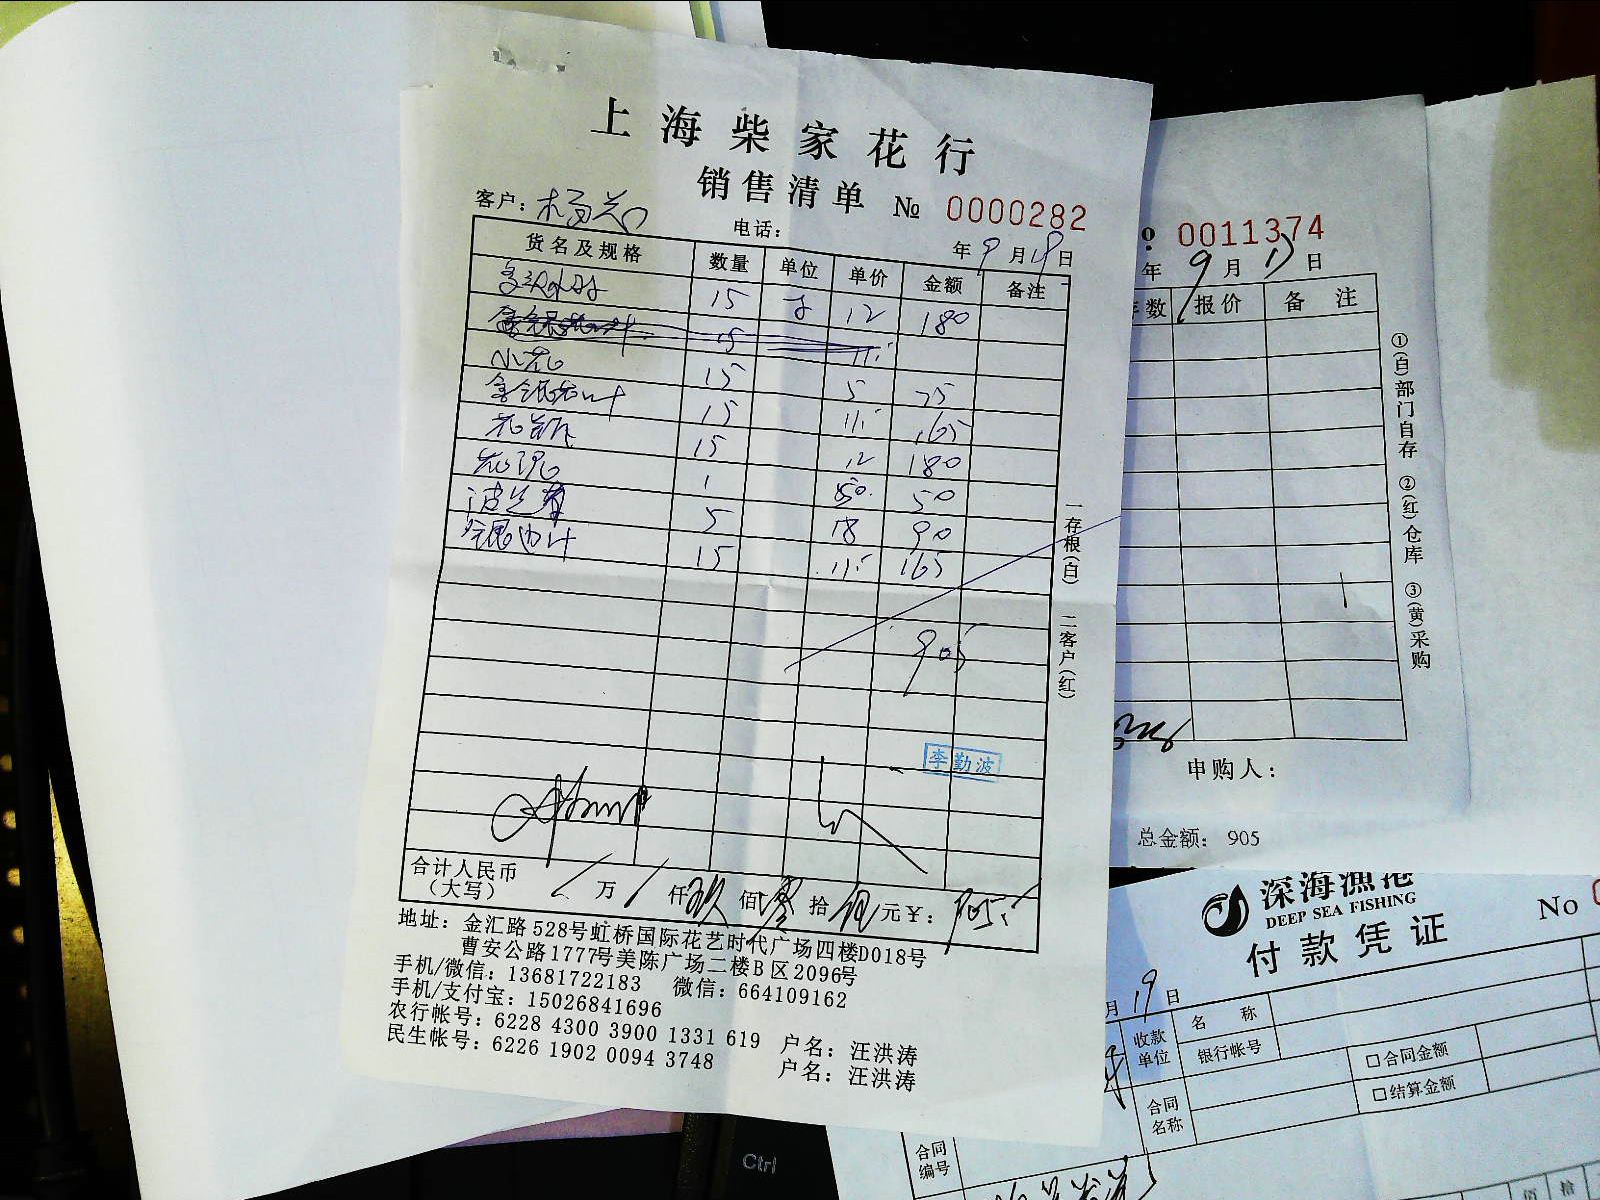 上海柴家花行
销售清单 № 0000282
客户：
电话：
年 9 月 19 日
货名及规格 数量 单位 单价 金额 备注
15 12 180
15 11
小花 15 5 75
15 11 165
15 12 180
1 50 50
5 18 90
15 11 165
905
李勤波
合计人民币（大写） 万 仟 玖 佰 零 拾 伍 元 ¥：905
一存根(白) 二客户(红)
地址：金汇路528号虹桥国际花艺时代广场四楼D018号
曹安公路1777号美陈广场二楼B区2096号
手机/微信：13681722183 微信：664109162
手机/支付宝：15026841696
农行帐号：6228 4300 3900 1331 619 户名：汪洪涛
民生帐号：6226 1902 0094 3748 户名：汪洪涛
0011374
年 9 月 日
数 报价 备注
①(白)部门自存 ②(红)仓库 ③(黄)采购
申购人：
总金额：905
深海渔港
DEEP SEA FISHING
付款凭证 No
月 19 日
收款单位 名称
银行帐号
合同名称 □合同金额
□结算金额
合同编号
佰 拾
Ctrl